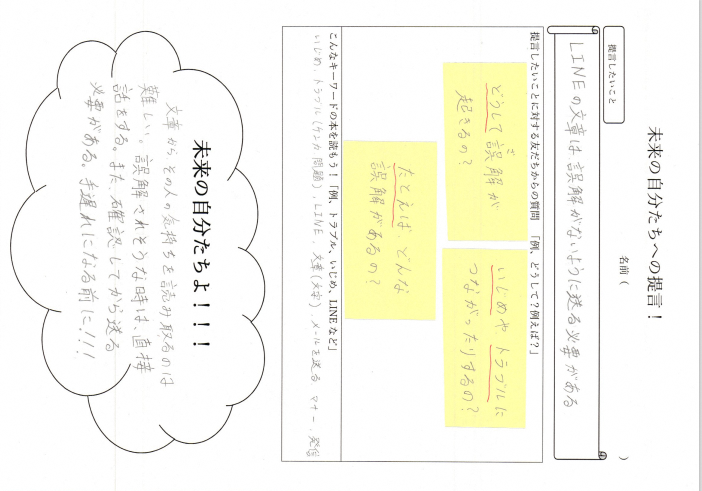 未来の自分たちへの提言！
名前（　　　）
提言したいこと
LINEの文章は誤解がないように送る必要がある
提言したいことに対する友だちからの質問　「例、どうして？例えば？」
どうして誤解が
ご
起きるの？
いじめやトラブルに
つながったりするの？
たとえば、どんな
誤解があるの？
こんなキーワードの本を読もう！「例、トラブル、いじめ、LINEなど」
いじめ、トラブル（ケンカ 問題）、LINE、文章（文字）、メールを送る マナー、発信
未来の自分たちよ！！！
文章からその人の気持ちを読み取るのは
難しい。誤解されそうな時は、直接
話をする。また、確認してから送る
必要がある。手遅れになる前に!!!